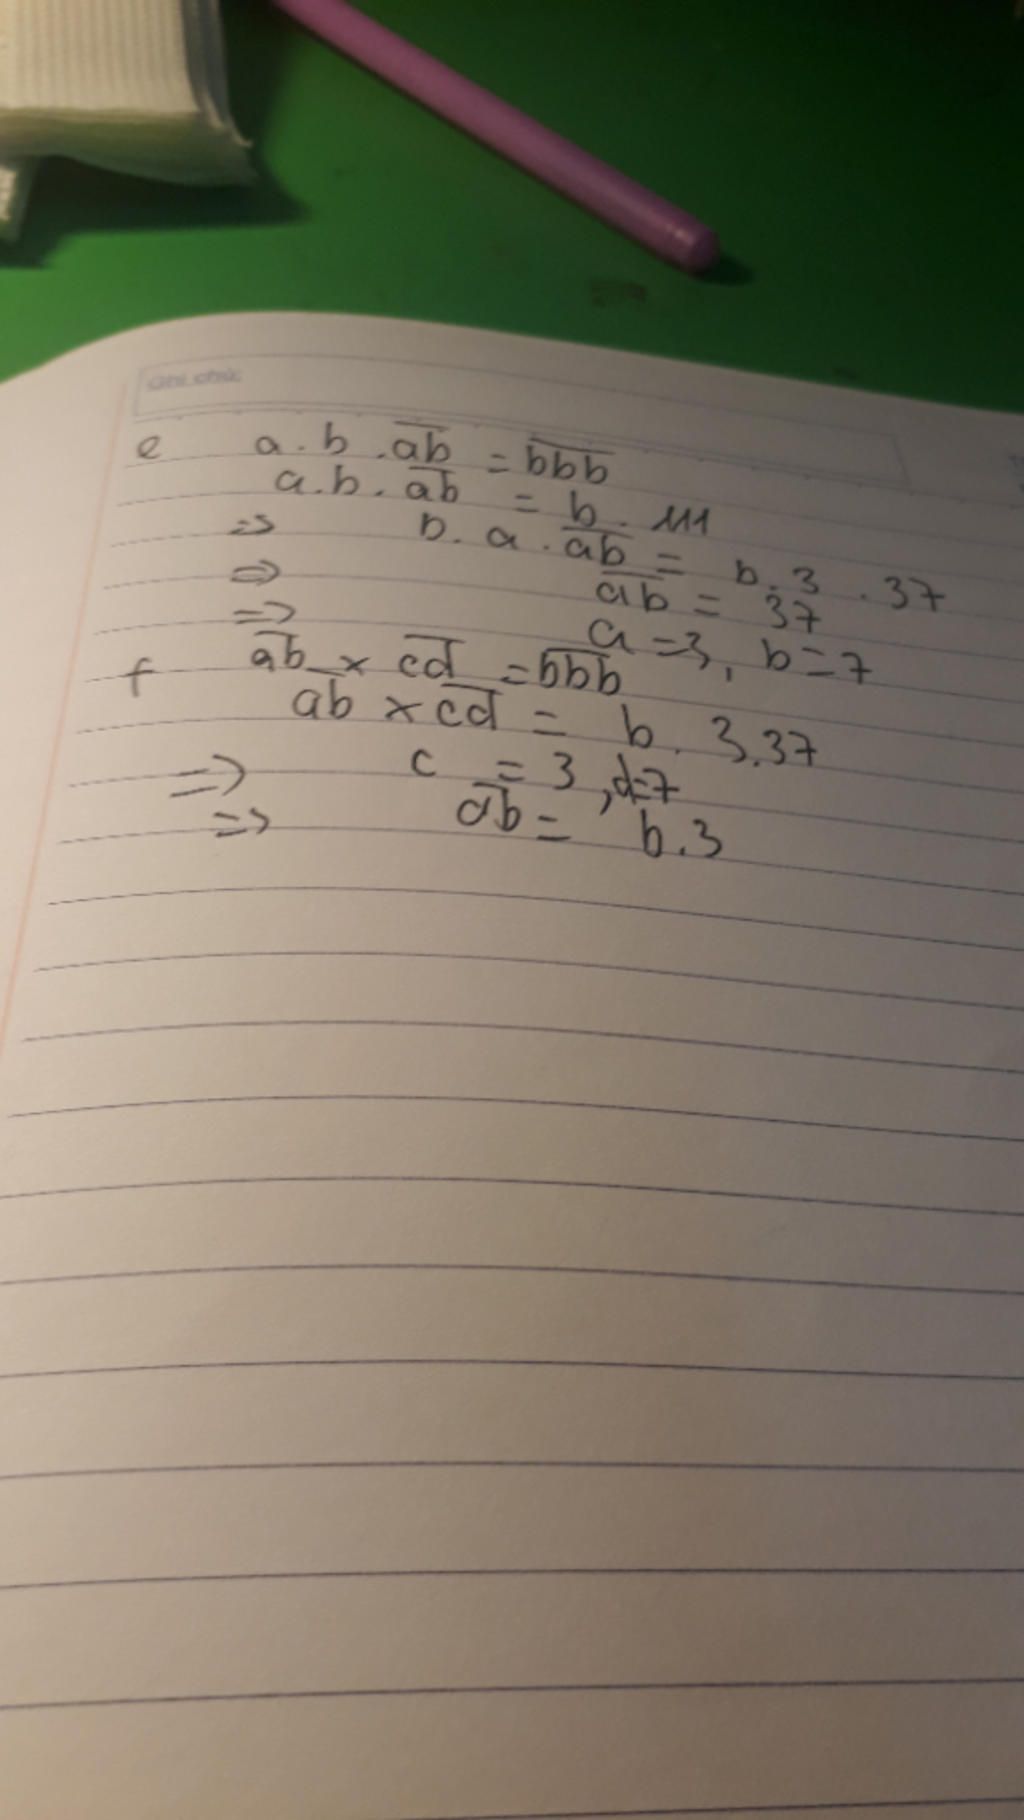 Ghi chú:
e a.b.a̅b̅ = b̅b̅b̅
a.b.a̅b̅ = b.111
=> b.a.a̅b̅ = b.3.37
=> a̅b̅ = 37
=> a=3, b=7
f a̅b̅ x c̅d̅ = b̅b̅b̅
a̅b̅ x c̅d̅ = b.3.37
=> c = 3, d=7
=> a̅b̅ = b.3